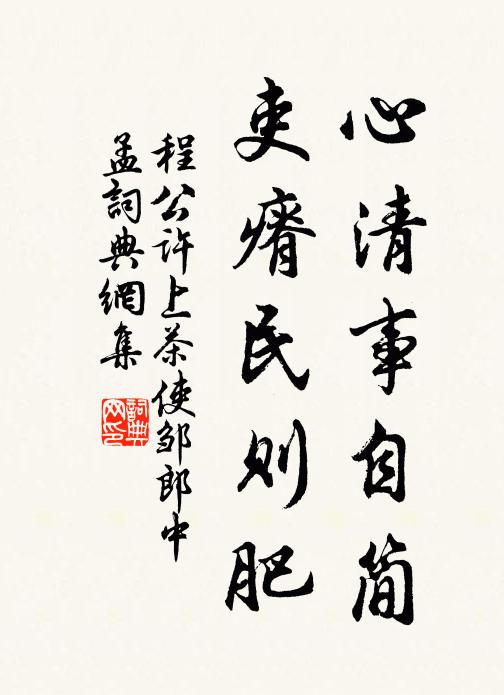 心清事自简
吏瘠民则肥
程公许上茶使邹郎中
孟词典網集
詞典
网印